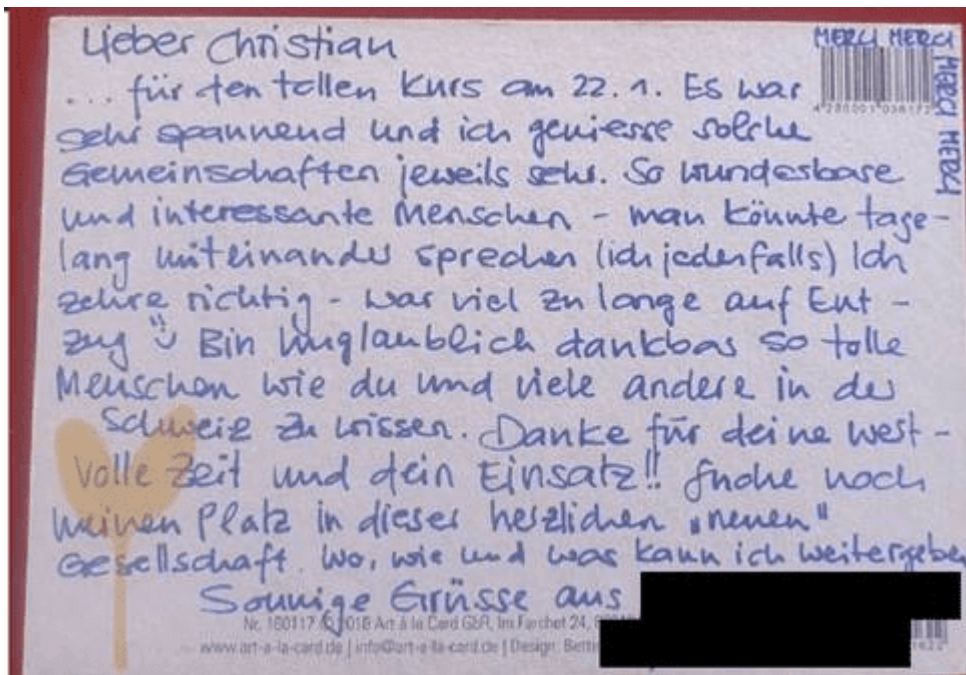 Lieber Christian
MERCI MERCI MERCI MERCI
... für den tollen Kurs am 22.1. Es war
sehr spannend und ich geniesse solche
Gemeinschaften jeweils sehr. So wunderbare
und interessante Menschen - man könnte tage-
lang miteinander sprechen (ich jedenfalls) Ich
zehre richtig - war viel zu lange auf Ent-
zug Bin unglaublich dankbar so tolle
Menschen wie du und viele andere in der
Schweiz zu wissen. Danke für deine wert-
volle Zeit und dein Einsatz!! Suche noch
meinen Platz in dieser herzlichen "neuen"
Gesellschaft. Wo, wie und was kann ich weitergeben
Sonnige Grüsse aus
Nr. 160117 / © 2018 Art à la Card GbR, Im Farchet 24,
www.art-a-la-card.de | info@art-a-la-card.de | Design: